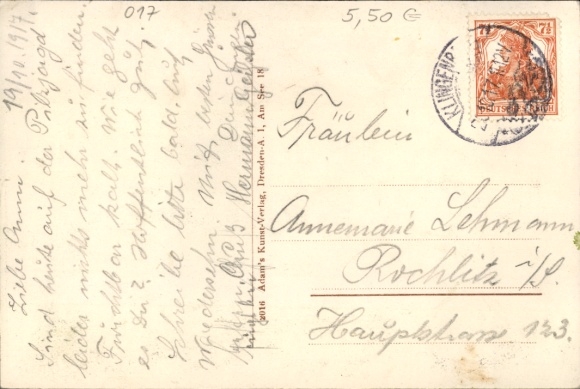 017
5,50 €
19/10. 1917.
Liebe Anni!
Sind heute auf der Pilzjagd
leider nichts mehr zu finden.
Furchtbar kalt. Wie geht
es Dir? Hoffentlich gut.
Schreibe bitte bald. Auf
Wiedersehn. Mit besten Grüssen
Hermann
2016 Adam's Kunst-Verlag, Dresden-A. 1, Am See 18
7½
KLINGEN
Fräulein
Annemarie Lehmann
Rochlitz i/S.
Hauptstrasse 123.